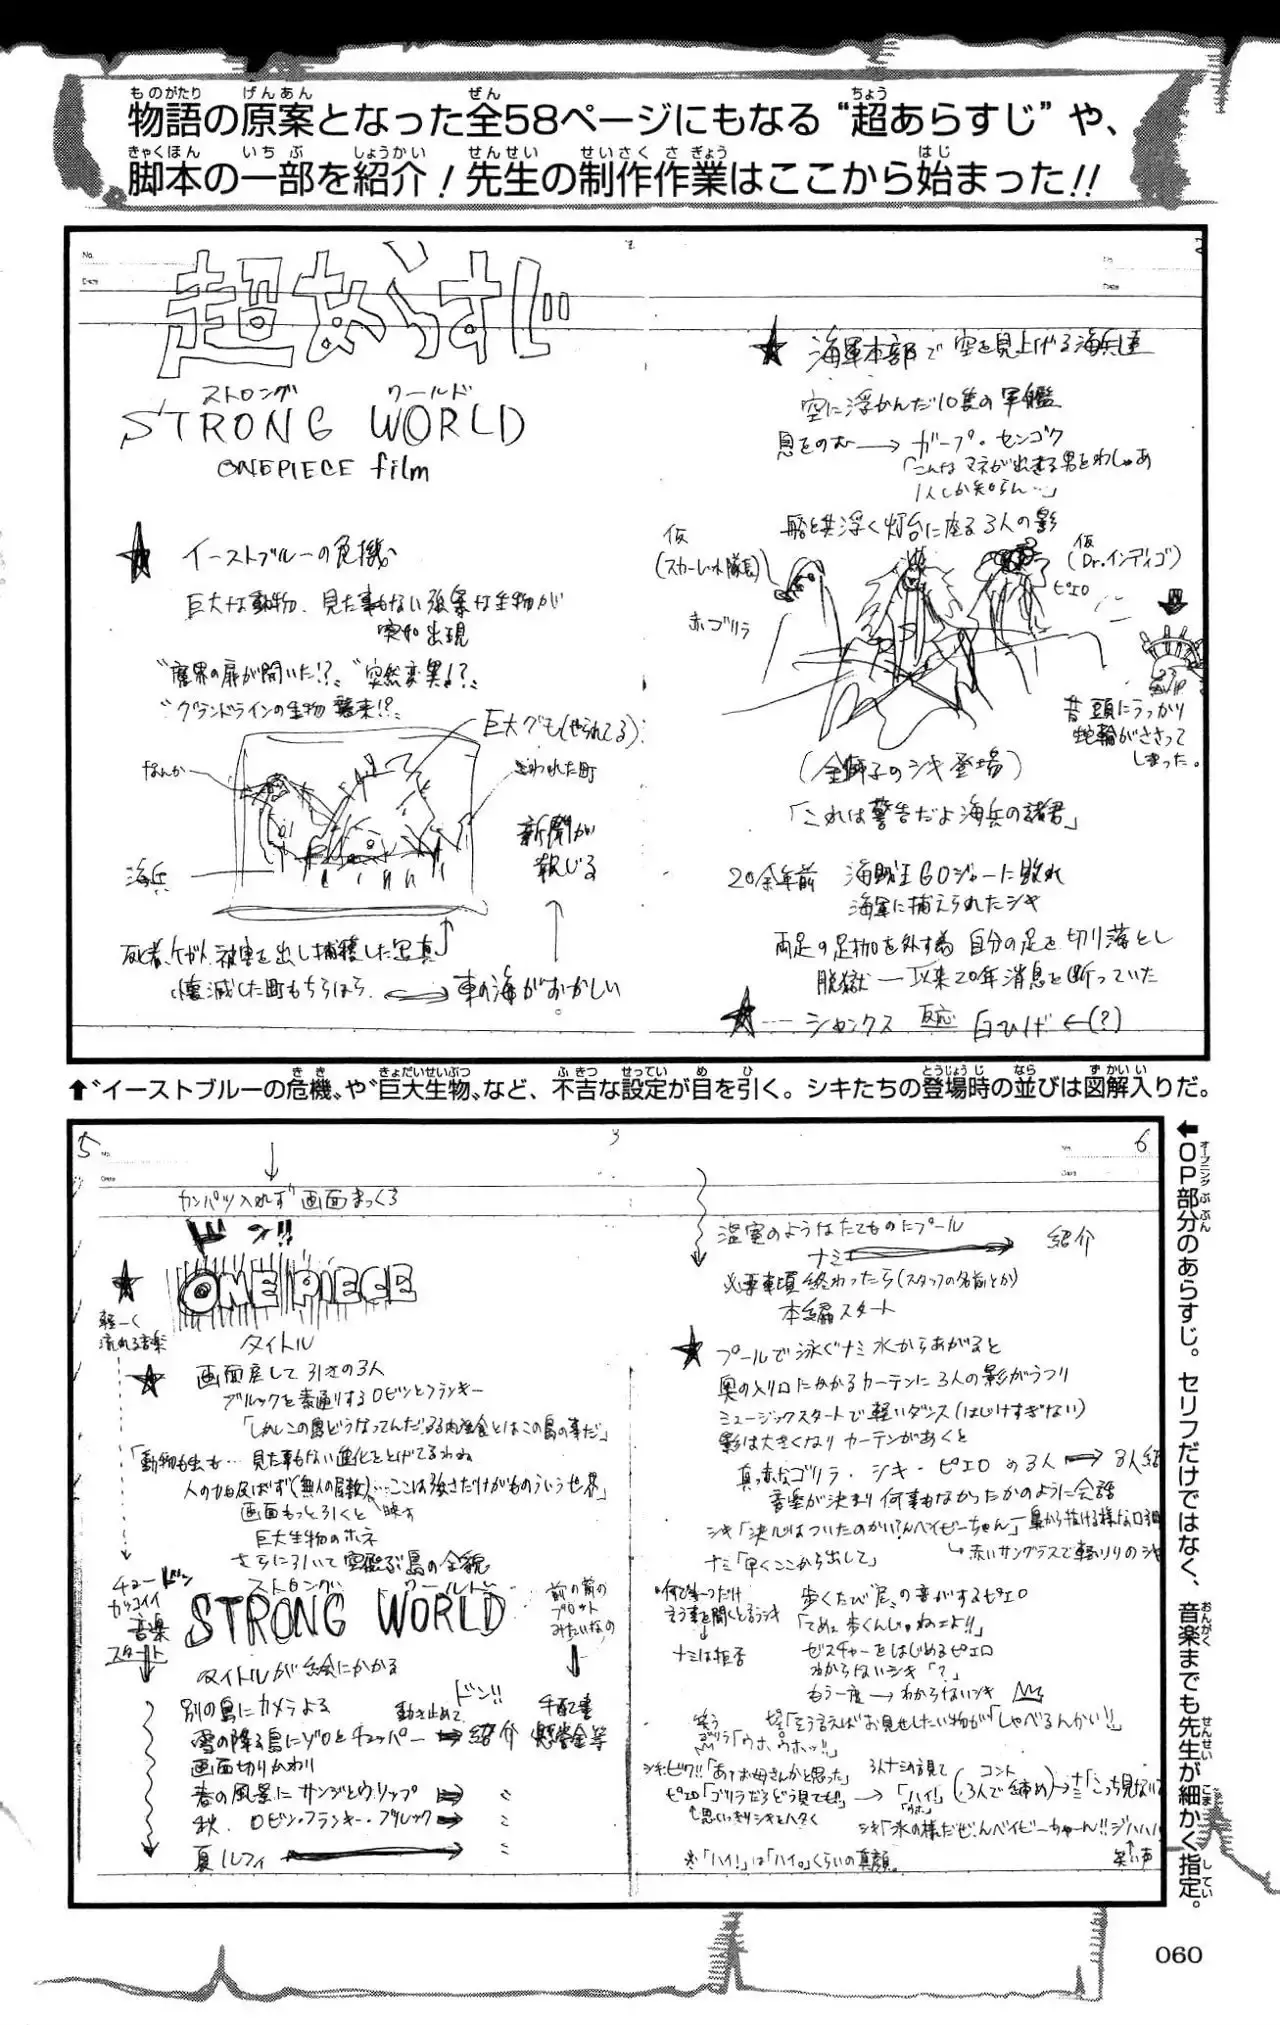 物語の原案となった全58ページにもなる“超あらすじ”や、
脚本の一部を紹介！先生の制作作業はここから始まった!!
超あらすじ
ストロング ワールド
STRONG WORLD
ONEPIECE film
イーストブルーの危機
巨大な動物、見た事もない強暴な生物が
突如出現
“魔界の扉が開いた!?” “突然変異!?”
“グランドラインの生物 襲来!?”
巨大グモ(やられてる)
なんか
襲われた町
新聞が
報じる
海兵
死者、ケガ人、被害を出し捕獲した写真
壊滅した町もちらほら
東の海がおかしい
海軍本部で空を見上げる海兵達
空に浮かんだ10隻の軍艦
息をのむ → ガープ・センゴク
「こんなマネが出来る男をわしゃあ
1人しか知らん…」
船と共浮く灯台に座る3人の影
仮
(スカーレット隊長)
赤ゴリラ
仮
(Dr.インディゴ)
ピエロ
昔頭にうっかり
舵輪がささって
しまった。
(金獅子のシキ登場)
「これは警告だよ海兵の諸君」
20余年前 海賊王Gロジャーに敗れ
海軍に捕えられたシキ
両足の足枷を外す為 自分の足を切り落とし
脱獄 ― 以来20年消息を断っていた
シャンクス 反応 白ひげ ←(?)
⬆“イーストブルーの危機”や“巨大生物”など、不吉な設定が目を引く。シキたちの登場時の並びは図解入りだ。
5
3
6
カンパツ入れず 画面まっくろ
ドン!!
ONE PIECE
軽ーく
流れる音楽
タイトル
画面戻して引きの3人
ブルックを素通りするロビンとフランキー
「動物も虫も… 見た事もない進化をとげてるわね
人の力も及ばず(無人の屋敷)…ここは強さだけがものをいう世界」
画面もっと引くと 映す
巨大生物のホネ
さらに引いて空飛ぶ島の全貌
ストロング ワールド
STRONG WORLD
チョードドン
カッコイイ
音楽
スタート
前の前の
プロット
みたいなの
タイトルが絵にかかる
別の島にカメラよる
動き止めて
ドン!!
雪の降る島にゾロとチョッパー → 紹介
手配書
懸賞金等
画面切りかわり
春の風景に サンジとウソップ
秋、ロビン・フランキー・ブルック
夏 ルフィ
温室のようなたてものにプール
ナミ → 紹介
必要事項 終わったら(スタッフの名前とか)
本編スタート
プールで泳ぐナミ 水からあがると
奥の入り口にかかるカーテンに3人の影がうつり
ミュージックスタートで軽いダンス(はじけすぎない)
影は大きくなり カーテンがあくと
真っ赤なゴリラ・シキ・ピエロの3人
音楽が決まり 何事もなかったかのように会話
シキ「決心はついたのかい?んベイビーちゃん」
鼻から抜ける様な口調
ナミ「早くここから出して」
歩くたび“屁”の音がするピエロ
「てめェ歩くんじゃねェよ!!」
ナミは拒否
ゼスチャーをはじめるピエロ
わからないシキ「?」
もう一度 → わからないシキ
「そう言えばお見せしたい物が」「しゃべるんかい!!」
笑う
ゴリラ「ウホ ウホッ!!」
シキ・ビクッ!!「あァお母さんかと思った」
ピエロ「ゴリラだろどう見ても!!」 → 「ハイ!」
思いっきりシキをハタく
コント
(3人で締め)
※「ハイ!」は「ハイ。」くらいの真顔。
笑い声
⬅OP部分のあらすじ。セリフだけではなく、音楽までも先生が細かく指定。
060